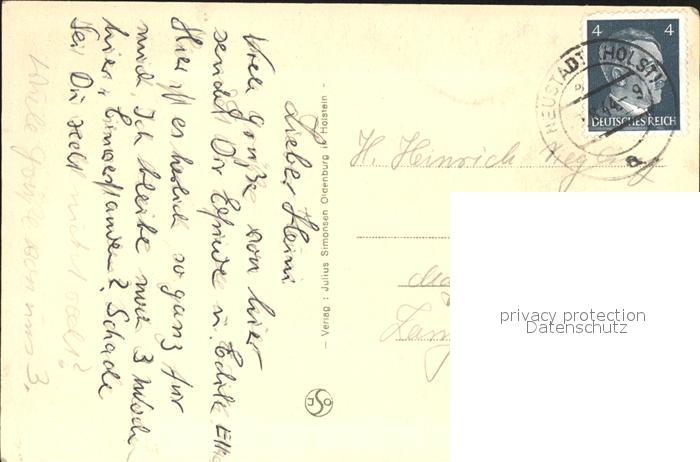 Lieber Heini
Viele Grüße von hier
sendet Dir u. Edith
Hier ist es herlich so ganz für
mich. Ich bleibe noch 3 Wochen
hier. Einverstanden? Schade
Dir nicht
Viele Grüße von uns 3.
— Verlag : Julius Simonsen Oldenburg i. Holstein —
JSO
4 4
DEUTSCHES REICH
NEUSTADT (HOLST)
a
H. Heinrich
privacy protection
Datenschutz